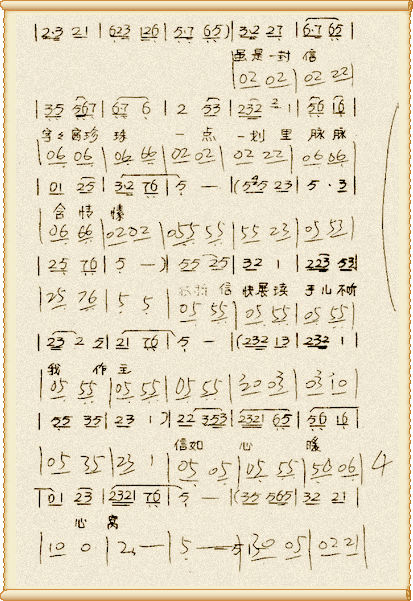 |2·3 21|623 126|5·7 65)|3·2 27|6·7 65|
虽是一封 信
|02 02|02 22|
|35 567|6·7 6|2 53|232 2 1|56 16|
字字 珍 珠 一 点 一划 里 脉脉
|06 06|06 66|02 02|02 22|06 06|
|01 25|3·2 76|5 —|(5 5 23|5·3|
含 情 愫
|06 66|0202|055 55|55 23|05 53|
|25 76|5 —)|55 25|32 1|223 53|
信 快展读 于儿不听
|25 76|5 5|05 55|05 55|05 55|
|23 2 5|21 76|5 —|(232 13|232 1|
我 作主
|05 55|05 55|05 55|30 03|03 10|
|55 35|23 1)|22 353|2321 65|56 16|
信如 心 暖
|05 35|23 1|05 05|05 55|56 06| 4
|01 23|2321 76|5 —|(35 565|32 21|
心 窝
|10 0|2 —|5 —|30 05|0221|